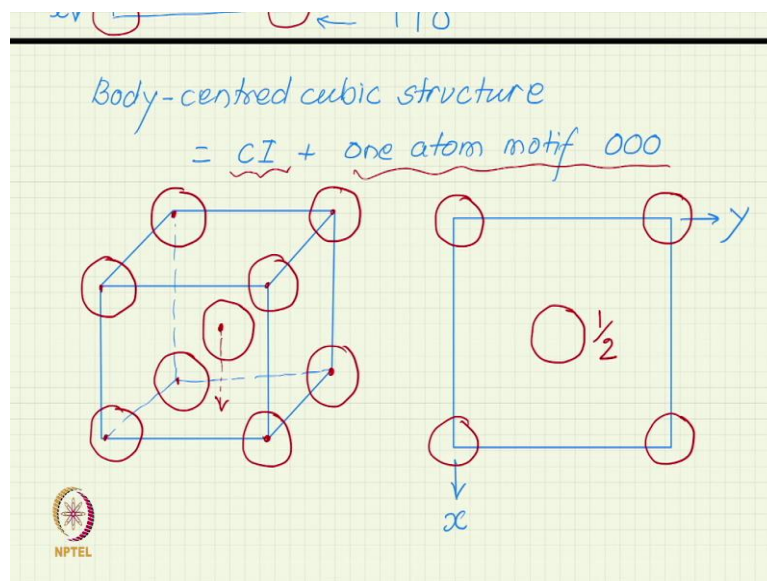 ← 110
Body-centred cubic structure
= CI + one atom motif 000
y
1/2
x
NPTEL